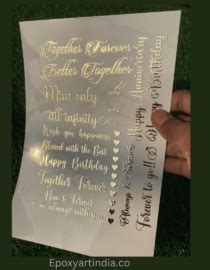 Together Forever
Better Together
Mine only
Till infinity
Wish you happiness
Blessed with the Best
Happy Birthday
Together Forever
Now & Forever
I'm always with you
Happy Anniversary
Happy Birthday
Always & Forever
Forever to go!!
Epoxyartindia.co